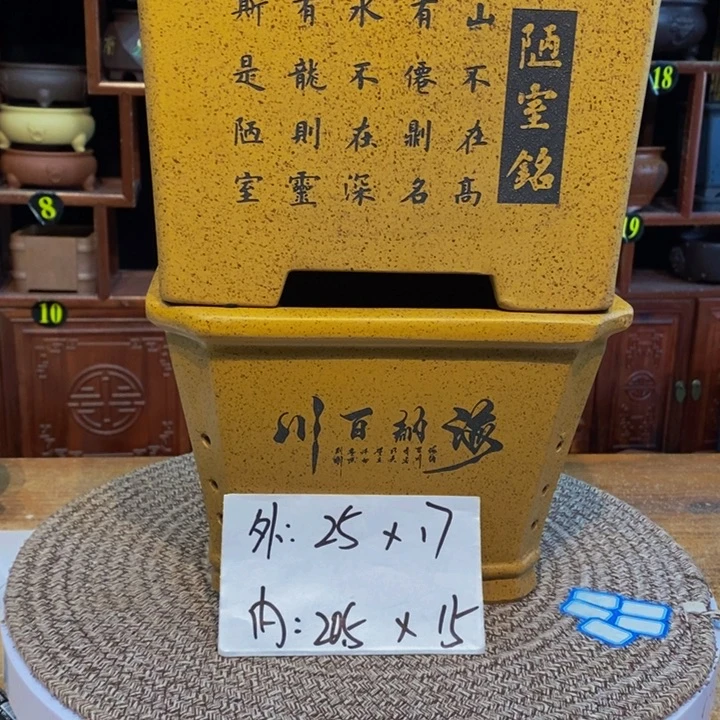 陋室銘
山不在高
有僊則名
水不在深
有龍則靈
斯是陋室
18
8
19
10
海納百川
外: 25 × 17
内: 20.5 × 15